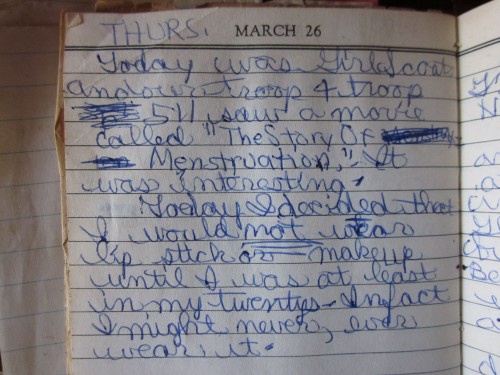 THURS. MARCH 26
Today was Girl Scout
and our troop & troop
511 saw a movie
called "The Story Of
Menstruation,". It
was interesting.
Today I decided that
I would not wear
lip stick or makeup
until I was at least
in my twentys. Infact
I might never, ever
wear it.